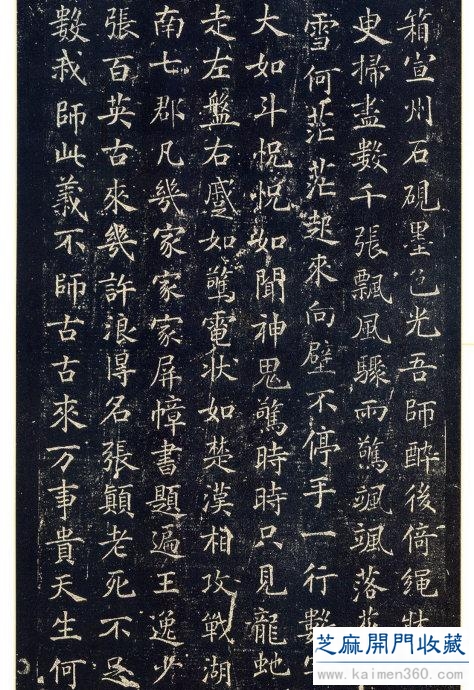 箱宣州石硯墨色光吾師醉後倚繩
臾掃盡數千張飄風驟雨驚颯颯落花
雪何茫茫起來向壁不停手一行數
大如斗怳怳如聞神鬼驚時時只見龍虵
走左盤右蹙如驚電狀如楚漢相攻戰湖
南七郡凡幾家家家屏幛書題遍王逸少
張百英古來幾許浪得名張顛老死不足
數我師此義不師古古來万事貴天生何
芝麻開門收藏
www.kaimen360.com